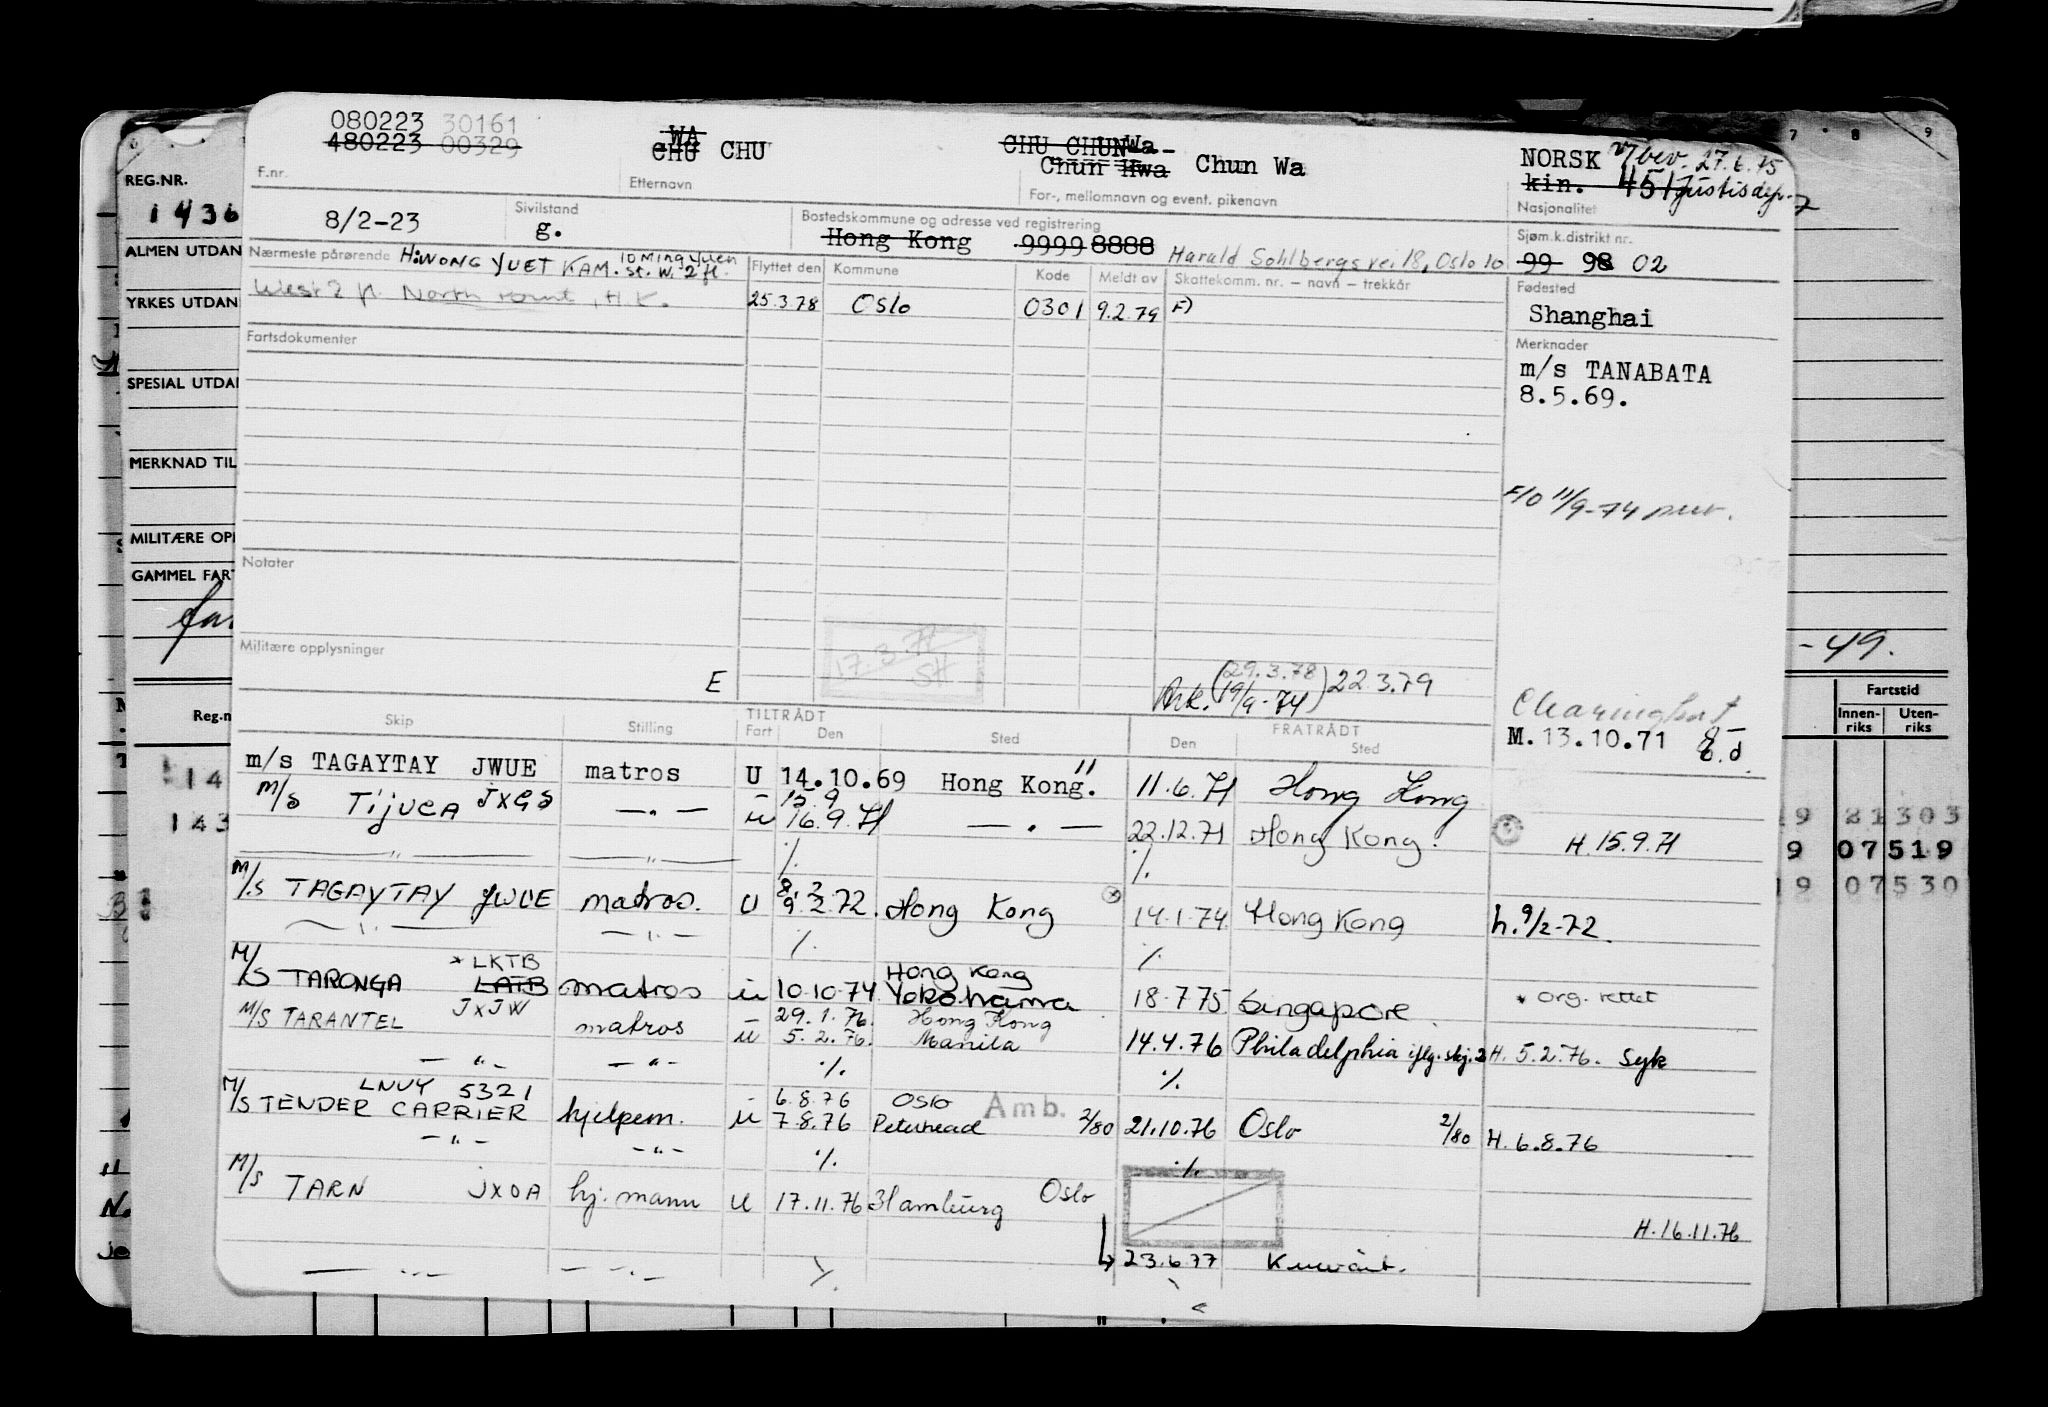 080223 30161
480223 00329
WA
CHU CHU
CHU CHUN Wa
Chun Hwa Chun Wa
NORSK v/bev. 27.6.75
kin. 451 Justisdep.
F.nr.
Etternavn
For-, mellomnavn og event. pikenavn
Nasjonalitet
8/2-23
Sivilstand
g.
Bostedskommune og adresse ved registrering
Hong Kong 9999 8888 Harald Sohlbergs vei 18, Oslo 10
Sjøm.k.distrikt nr.
99 98 02
Nærmeste pårørende H: WONG YUET KAM. 10 Ming Yuen
St. W. 2 fl.
West 2 fl. North Point, H.K.
Flyttet den Kommune Kode Meldt av Skattekomm. nr. – navn – trekkår
25.3.78 Oslo 0301 9.2.79 F)
Fødested
Shanghai
Fartsdokumenter
Merknader
m/s TANABATA
8.5.69.
F/O 11/9-74
Notater
Militære opplysninger
E
17.3.71
SH
Ark. (29.3.78
19/9-74) 22.3.79
M. 13.10.71
Skip Stilling TILTRÅDT Fart Den Sted FRATRÅDT Den Sted
m/s TAGAYTAY JWUE matros U 14.10.69 Hong Kong. " 11.6.71 Hong Kong
M/s Tijuca JXGS — . — u 15.9
16.9.71 — . — 22.12.71 Hong Kong. H. 15.9.71
— " — — " — %. %.
M/S TAGAYTAY JWUE matros. U 8.2
9.2.72. Hong Kong 14.1.74 Hong Kong h. 9/2-72.
— " — — " — %. %.
* LKTB Hong Kong
M/S TARONGA LATB matros u 10.10.74 Yokohama 18.7.75 Singapore * org. rettet
M/S TARANTEL JXJW matros u 29.1.76. Hong Kong
5.2.76. Manila 14.4.76 Philadelphia iflg. skj. 2 H. 5.2.76. syk
— " — — " — %. %.
LNVY 5321 6.8.76 Oslo Amb.
M/S TENDER CARRIER hjelpem. u 7.8.76 Peterhead 2/80 21.10.76 Oslo 2/80 H. 6.8.76
— " — — " — %. %.
M/S TARN JXOA hj. mann U 17.11.76 Hamburg Oslo
H. 16.11.76
23.6.77 Kuwait.
REG.NR.
1436
ALMEN UTDAN
YRKES UTDAN
SPESIAL UTDA
MERKNAD TIL
MILITÆRE OP
GAMMEL FART
Reg.n
14
143
7 8 9
-49.
Fartstid
Innen-
riks Uten-
riks
19 21303
9 07519
19 07530